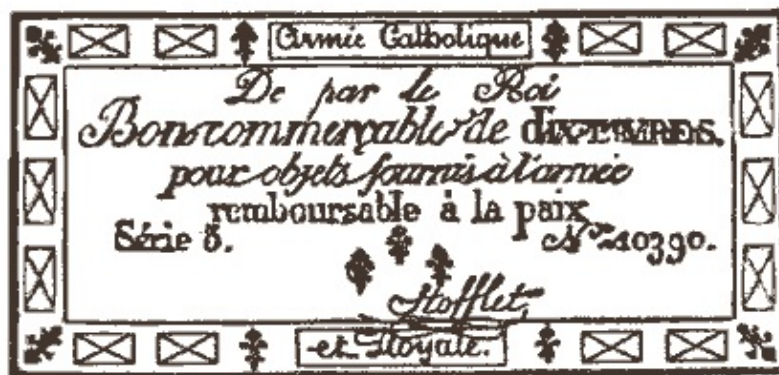 Armée Catholique
De par le Roi
Bon commerçable de dix LIVRES.
pour objets fournis à l'armée
remboursable à la paix
Série 5. No. 10390.
Stofflet,
et Royale.